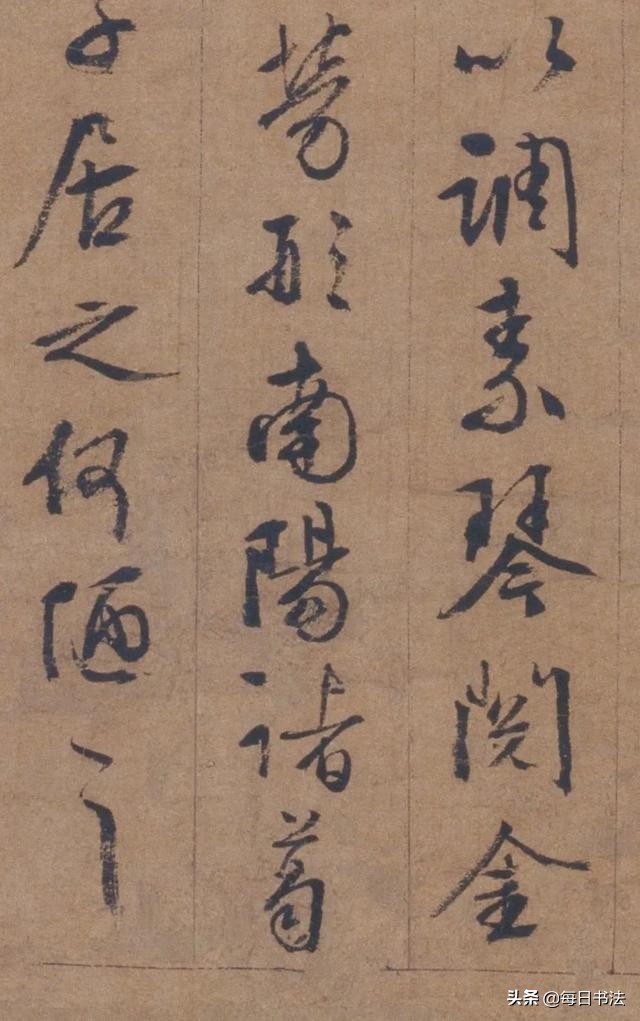 以調素琴閱金
勞形南陽諸葛
子居之何陋之
头条 @每日书法